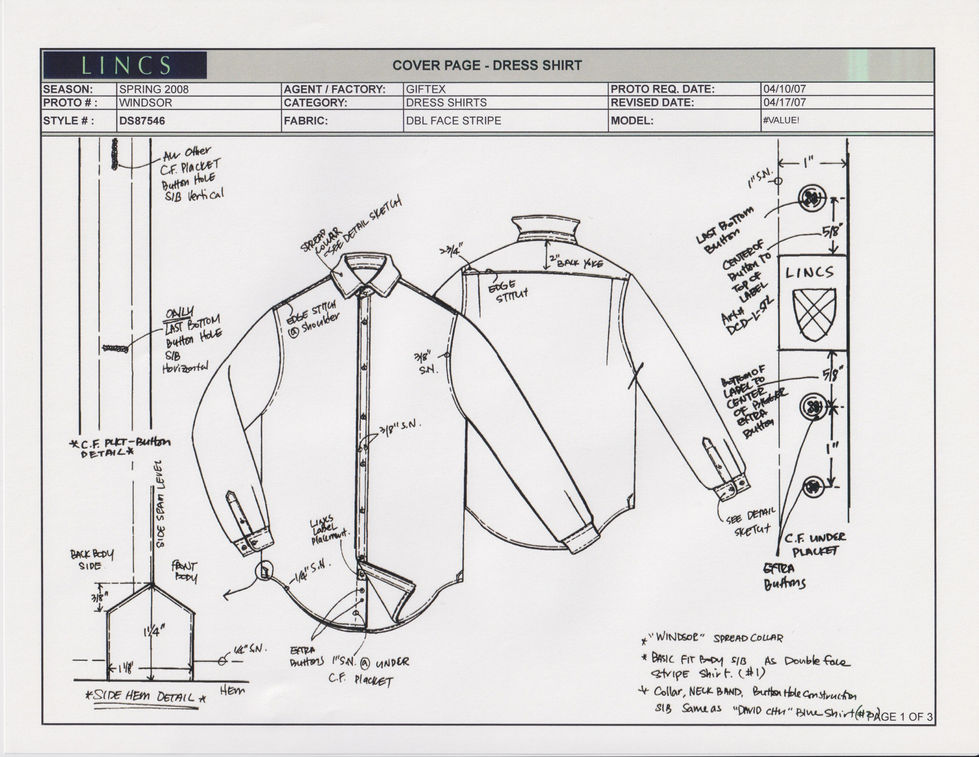 LINCS
COVER PAGE - DRESS SHIRT
SEASON: SPRING 2008 AGENT / FACTORY: GIFTEX PROTO REQ. DATE: 04/10/07
PROTO # : WINDSOR CATEGORY: DRESS SHIRTS REVISED DATE: 04/17/07
STYLE # : DS87546 FABRIC: DBL FACE STRIPE MODEL: #VALUE!
ALL OTHER
C.F. PLACKET
Button Hole
S/B Vertical
ONLY
LAST BOTTOM
Button Hole
S/B
Horizontal
*C.F. PLKT-Button
DETAIL*
SIDE SEAM LEVEL
BACK BODY
SIDE
FRONT
BODY
3/8"
1 1/4"
1 1/8"
1/4" S.N.
Hem
*SIDE HEM DETAIL*
SPREAD
COLLAR
SEE DETAIL SKETCH
EDGE STITCH
@ Shoulder
3/8"
S.N.
3/8" S.N.
LINCS
LABEL
Placement.
1/4" S.N.
EXTRA
Buttons
1" S.N. @ UNDER
C.F. PLACKET
2 3/4"
2" BACK YOKE
EDGE
STITCH
SEE DETAIL
SKETCH
1" S.N.
1"
LAST BOTTOM
Button
5/8"
CENTER OF
Button TO
TOP OF
LABEL
Art#
LINCS
BOTTOM OF
LABEL TO
CENTER
OF BIGGER
EXTRA
Button
5/8"
1"
C.F. UNDER
PLACKET
EXTRA
Buttons
* "WINDSOR" SPREAD COLLAR
* BASIC FIT BODY S/B AS Double face
STRIPE Shirt. (#1)
* Collar, NECK BAND, Button Hole Construction
S/B Same as "DAVID CHU" Blue Shirt
PAGE 1 OF 3